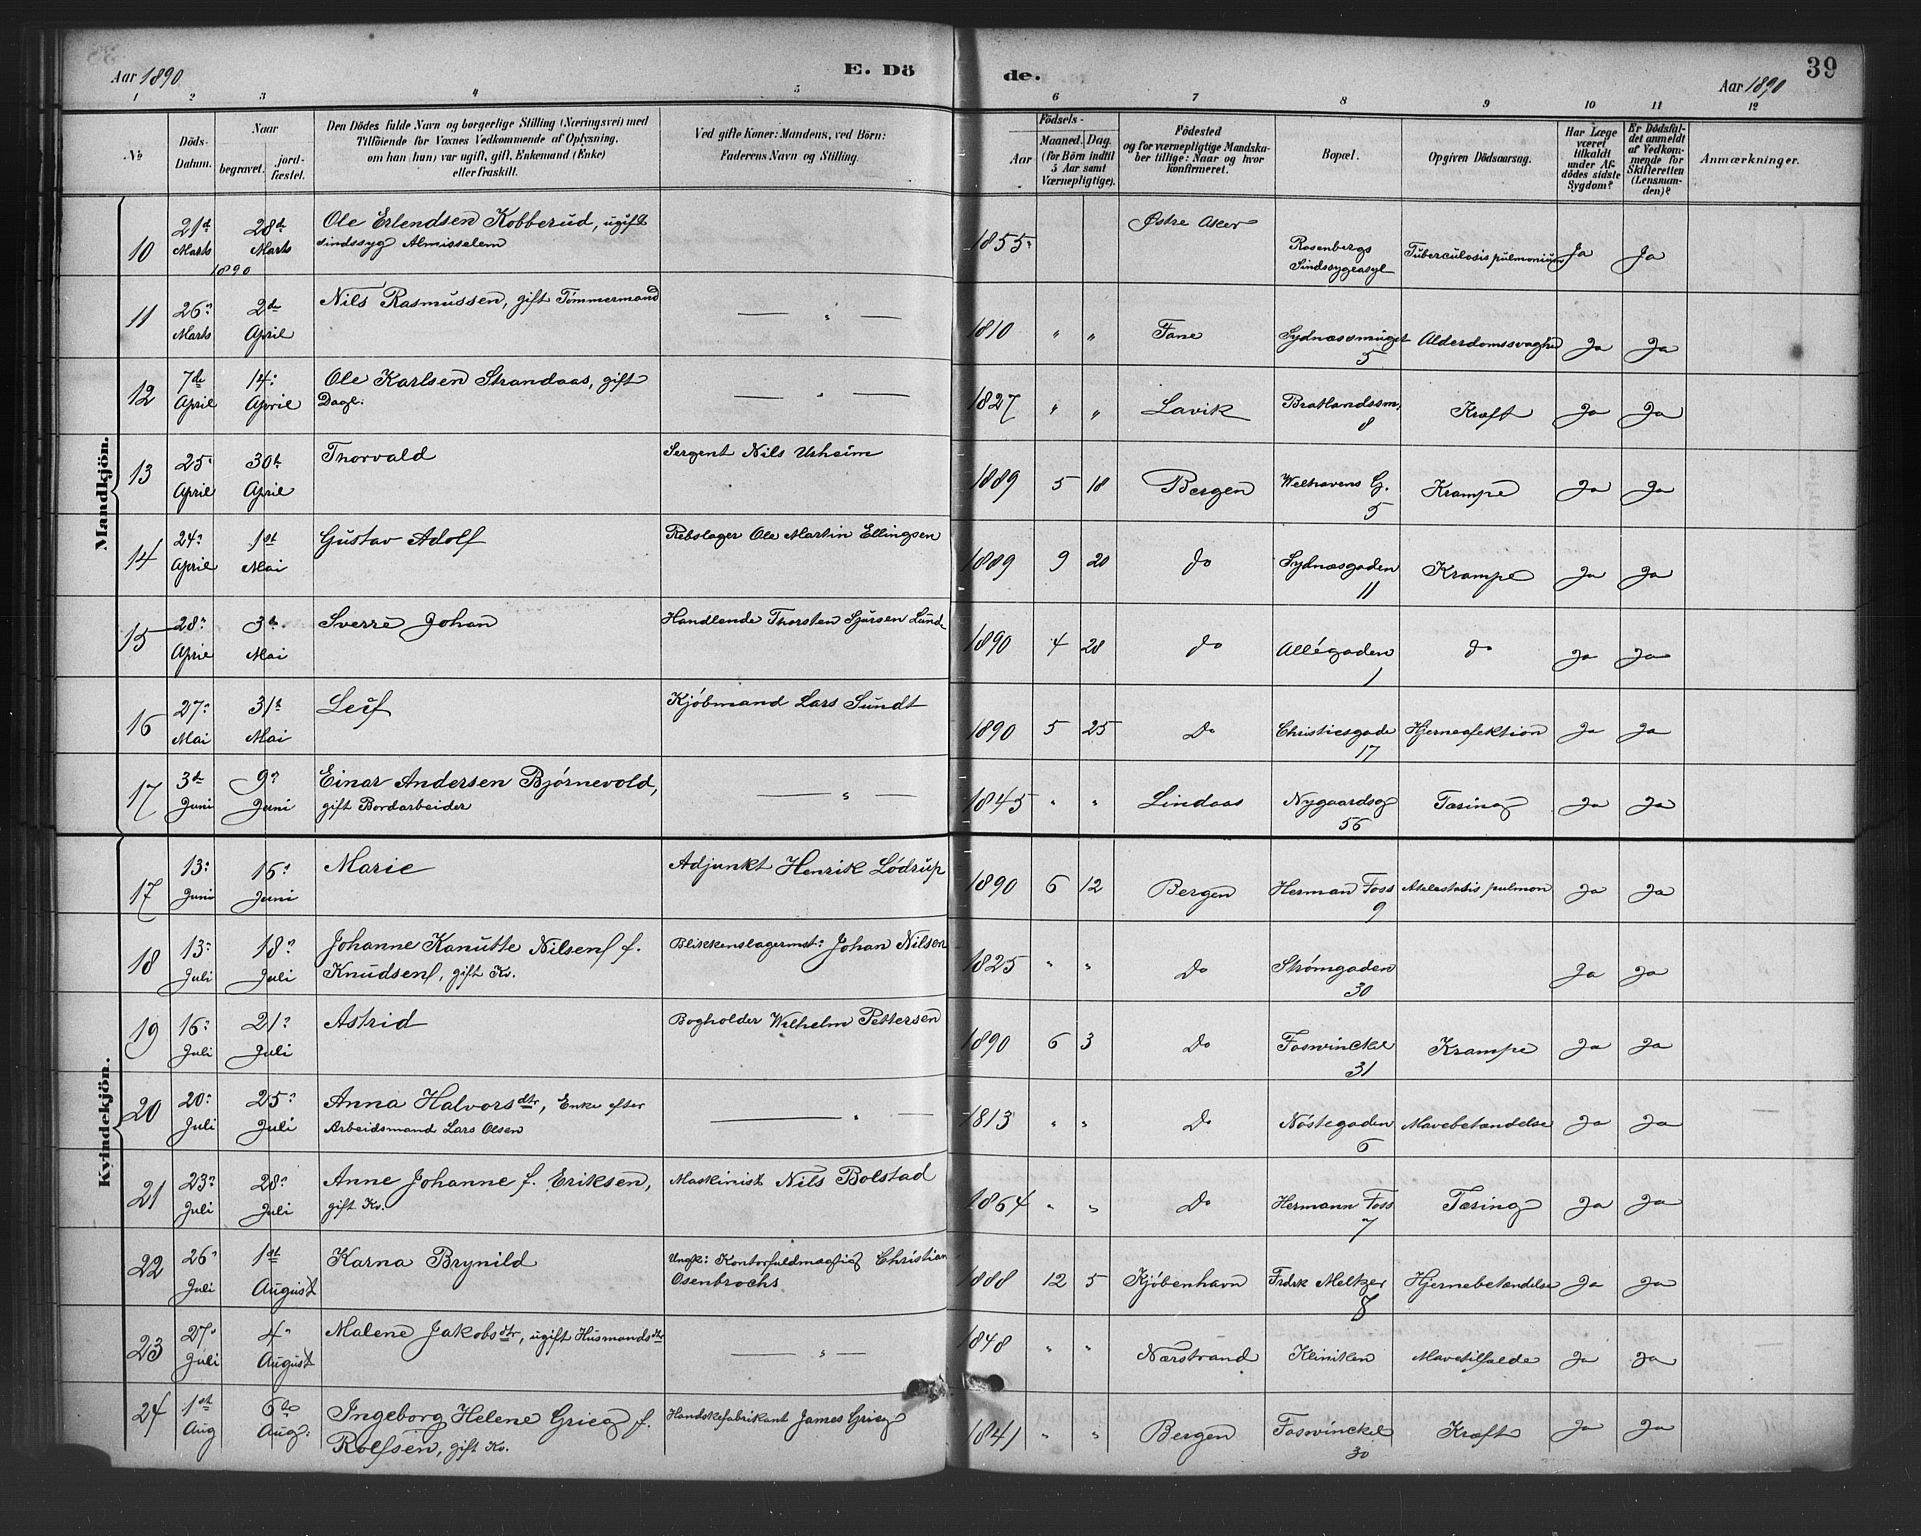 Aar 1890
E. Dö
de.
Aar 1890
39
1 2 3 4 5 6 7 8 9 10 11 12
No
Döds-
Datum.
Naar
begravet.
jord-
fæstet.
Den Dödes fulde Navn og borgerlige Stilling (Næringsvei) med
Tilföiende for Voxnes Vedkommende af Oplysning,
om han (hun) var ugift, gift, Enkemand (Enke)
eller fraskilt.
Ved gifte Koner: Mandens, ved Börn:
Faderens Navn og Stilling.
Födsels-
Aar
Maaned.
Dag.
(for Börn indtil
5 Aar samt
Værnepligtige).
Födested
og for værnepligtige Mandska-
ber tillige: Naar og hvor
konfirmeret.
Bopæl.
Opgiven Dödsaarsag.
Har Læge
været
tilkaldt
under Af-
dödes sidste
Sygdom?
Er Dödsfal-
det anmeldt
af Vedkom-
mende for
Skifteretten
(Lensman-
den)?
Anmærkninger.
Mandkjön.
10 21de Marts 28de Marts 1890 Ole Erlendsen Kobberud, ugift
sindssyg Almisselem
1855 Østre Aker Rosenbergs
Sindssygeasyl Tuberculosis pulmonium Ja Ja
11 26 Marts 2de April Nils Rasmussen, gift Tømmermand — " —
1810 " " Fane Sydnæssmuget
5 Alderdomssvaghed Ja Ja
12 7de April 14 April Ole Karlsen Strandaas, gift
Dagl: — " —
1827 " " Lavik Bratlandssm.
8 Kræft Ja Ja
13 25 April 30te April Thorvald Sergent Nils Urheim
1889 5 18 Bergen Welhavens G.
5 Krampe Ja Ja
14 24 April 1st Mai Gustav Adolf Rebslager Ole Martin Ellingsen
1889 9 20 do Sydnæsgaden
11 Krampe Ja Ja
15 28 April 3de Mai Sverre Johan Handlende Thorsten Sjursen Lunde
1890 4 28 do Allégaden
1 do Ja Ja
16 27 Mai 31te Mai Leif Kjøbmand Lars Sundt
1890 5 25 Do Christiesgade
17 Hjerneafektion Ja Ja
17 3de Juni 9 Juni Einar Andersen Bjørnevold,
gift Bordarbeider — " —
1845 " " Lindaas Nygaardsg
56 Tæring Ja Ja
Kvindekjön.
17 13 Juni 16 Juni Marie Adjunkt Henrik Lødrup
1890 6 12 Bergen Herman Foss
9 pulmon Ja Ja
18 13 Juli 18 Juli Johanne Kanutte Nilsen f.
Knudsen, gift Ko. Blikkenslagermst: Johan Nilsen
1825 " " Do Strømgaden
30 Ja Ja
19 16 Juli 21 Juli Astrid Bogholder Wilhelm Pettersen
1890 6 3 Do Foswinckel
31 Krampe Ja Ja
20 20 Juli 25 Juli Anna Halvorsdtr, Enke efter
Arbeidsmand Lars Olsen — " —
1813 " " Do Nøstegaden
6 Mavebetændelse Ja Ja
21 23 Juli 28 Juli Anne Johanne f. Eriksen,
gift Ko. Maskinist Nils Bolstad
1864 " " Do Hermann Foss
7 Tæring Ja Ja
22 26 Juli 1st August Karna Brynild Kontorfuldmægtig Christian
Osenbrochs
1888 12 5 Kjøbenhavn Fredrk Meltzer
8 Hjernebetændelse Ja Ja
23 27 Juli 4 August Malene Jakobsdtr, ugift Husmandsdtr — " —
1848 " " Nærstrand Kliniken Mavetilfælde Ja Ja
24 1st Aug 6te Aug: Ingeborg Helene Grieg f.
Rolfsen, gift Ko. Handskefabrikant James Grieg
1841 " " Bergen Foswinckel
30 Kræft Ja Ja